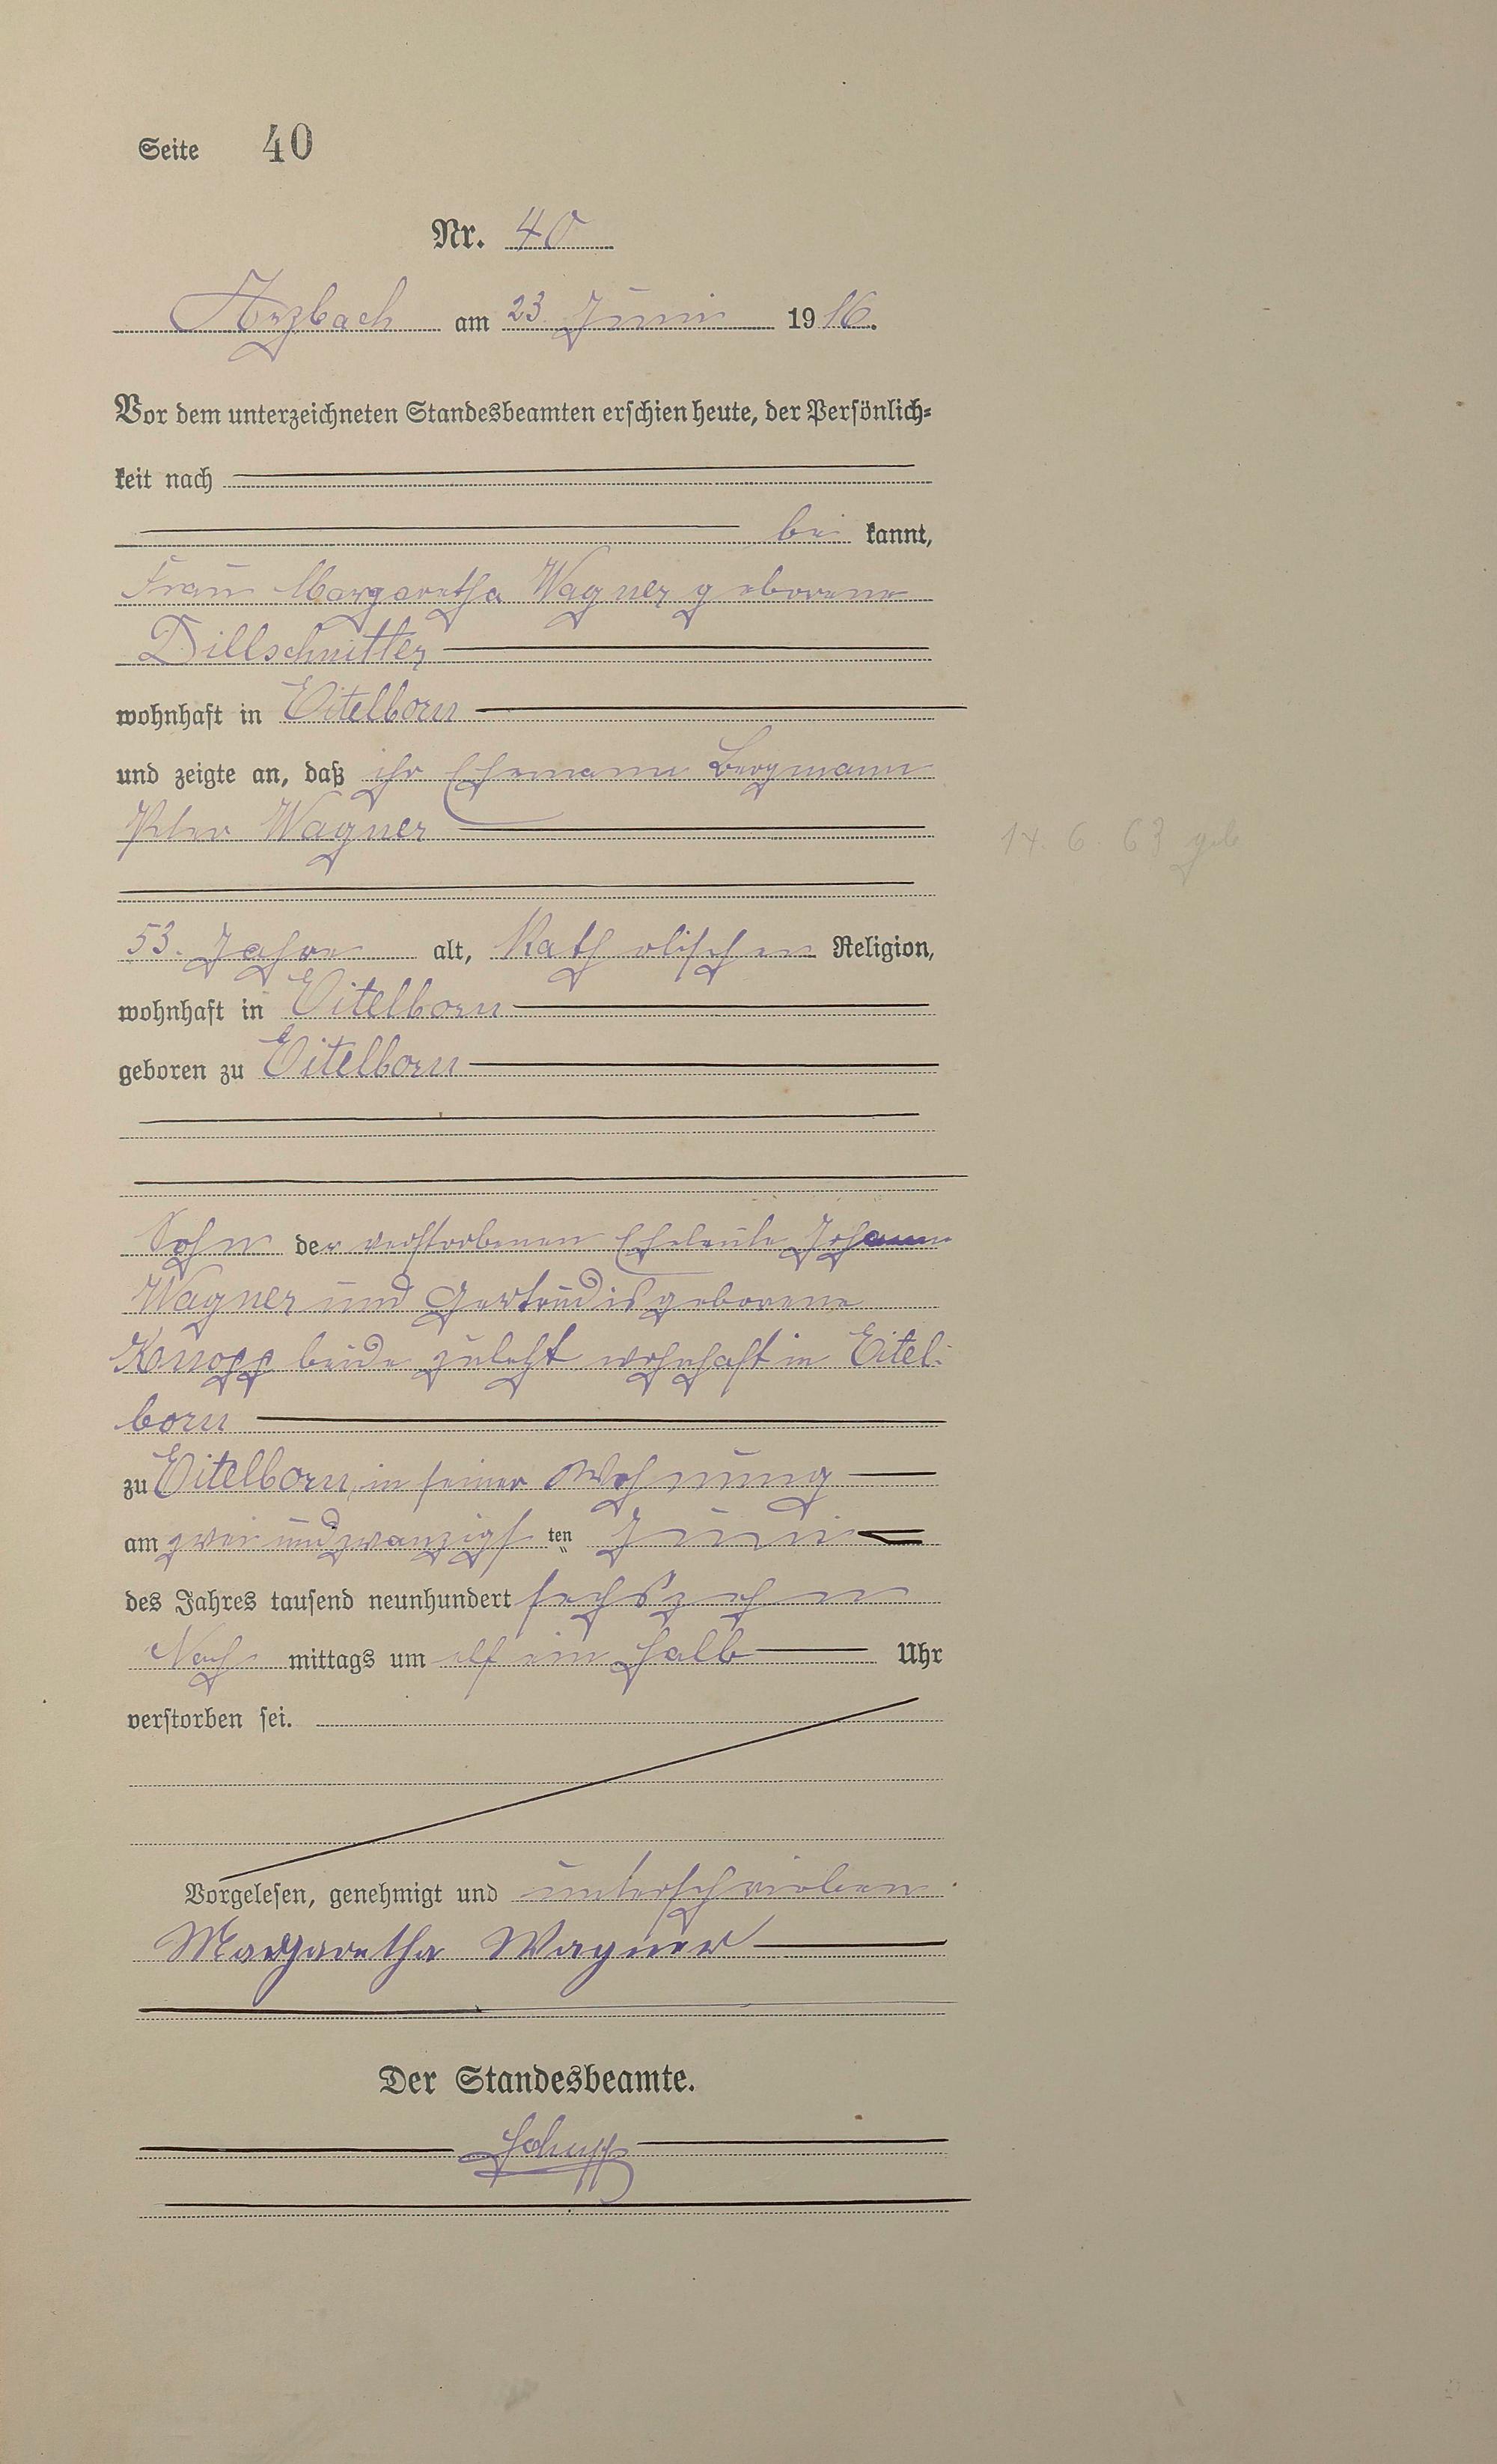 Seite 40
Nr. 40
Arzbach am 23. Juni 1916.
Vor dem unterzeichneten Standesbeamten erschien heute, der Persönlich=
keit nach
be kannt,
Frau Margaretha Wagner geborene
Dillschnitter
wohnhaft in Eitelborn
und zeigte an, daß ihr Ehemann Bergmann
Peter Wagner
14. 6. 63 geb
53 Jahre alt, Katholischen Religion,
wohnhaft in Eitelborn
geboren zu Eitelborn
Sohn der verstorbenen Eheleute Johann
Wagner und Gertrudis geborene
Knopp beide zuletzt wohnhaft in Eitel-
born
zu Eitelborn, in seiner Wohnung
am zwei und zwanzigs ten Juni
des Jahres tausend neunhundert sechszehn
Nach mittags um elf ein halb Uhr
verstorben sei.
Vorgelesen, genehmigt und unterschrieben
Margaretha Wagner
Der Standesbeamte.
Schupp